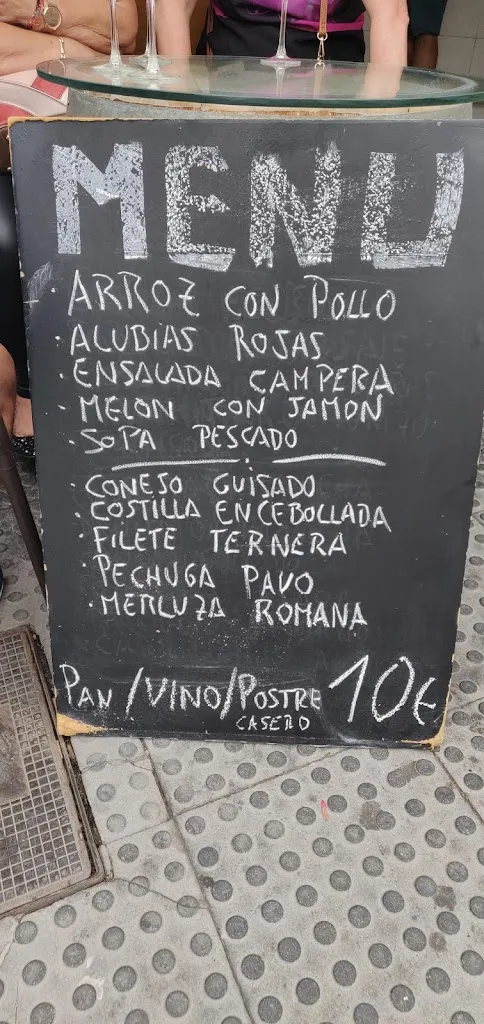 MENU
ARROZ CON POLLO
· ALUBIAS ROJAS
· ENSALADA CAMPERA
· MELON CON JAMON
· SOPA PESCADO
· CONEJO GUISADO
· COSTILLA ENCEBOLLADA
· FILETE TERNERA
· PECHUGA PAVO
· MERLUZA ROMANA
PAN /VINO/POSTRE 10€
CASERO